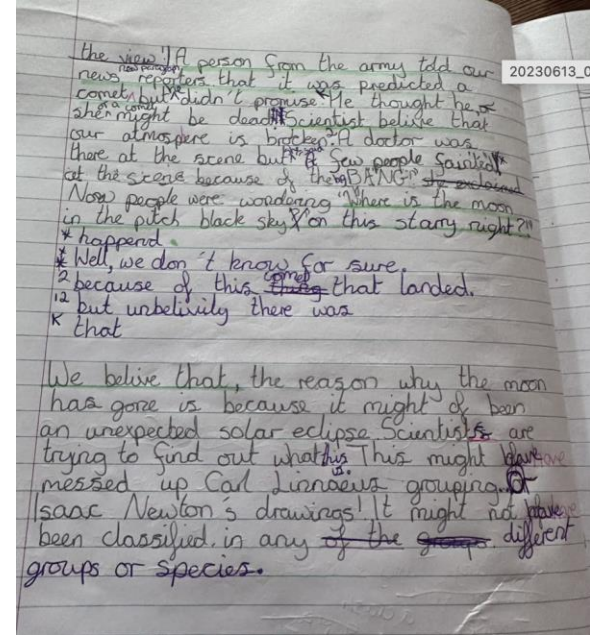 the view." A person from the army told our
new paragraph
news reporters that it was predicted a
comet, but didn't promise. He thought he or
of a comet
she might be dead. Scientist belive that
our atmospere is brocken. A doctor was
20230613_0
there at the scene but a few people fainted
at the scene because of the big BANG!" she exclaimed
Now people were wondering "Where is the moon
in the pitch black sky on this starry night?"
* happend.
* Well, we don't know for sure.
2 because of this comet thing that landed.
12 but unbelivily there was
K that
We belive that, the reason why the moon
has gone is because it might of been
an unexpected solar eclipse. Scientists are
trying to find out what this is. This might have
messed up Carl Linnaeus grouping. Or
Isaac Newton's drawings! It might not have
been classified. in any of the groups. different
groups or species.